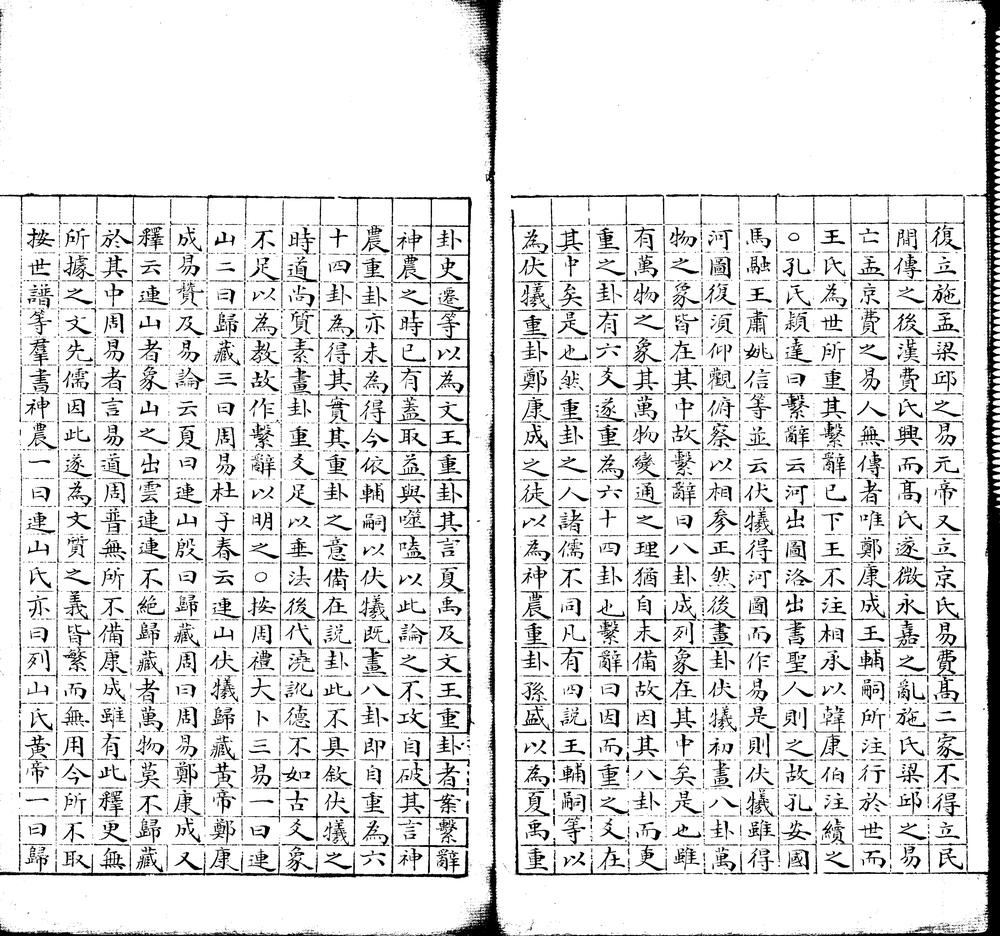 復立施孟梁邱之易元帝又立京氏易費高二家不得立民
間傳之後漢費氏興而高氏遂微永嘉之亂施氏梁邱之易
亡孟京費之易人無傳者唯鄭康成王輔嗣所注行於世而
王氏為世所重其繫辭已下王不注相承以韓康伯注續之
○孔氏穎達曰繫辭云河出圖洛出書聖人則之故孔安國
馬融王肅姚信等並云伏犧得河圖而作易是則伏犧雖得
河圖復須仰觀俯察以相參正然後畫卦伏犧初畫八卦萬
物之象皆在其中故繫辭曰八卦成列象在其中矣是也雖
有萬物之象其萬物變通之理猶自未備故因其八卦而更
重之卦有六爻遂重為六十四卦也繫辭曰因而重之爻在
其中矣是也然重卦之人諸儒不同凡有四説王輔嗣等以
為伏犧重卦鄭康成之徒以為神農重卦孫盛以為夏禹重
卦史遷等以為文王重卦其言夏禹及文王重卦者案繫辭
神農之時已有蓋取益與噬嗑以此論之不攻自破其言神
農重卦亦未為得今依輔嗣以伏犧既畫八卦即自重為六
十四卦為得其實其重卦之意備在説卦此不具敘伏犧之
時道尚質素畫卦重爻足以垂法後代澆訛德不如古爻象
不足以為教故作繫辭以明之○按周禮大卜三易一曰連
山二曰歸藏三曰周易杜子春云連山伏犧歸藏黄帝鄭康
成易贊及易論云夏曰連山殷曰歸藏周曰周易鄭康成又
釋云連山者象山之出雲連連不絶歸藏者萬物莫不歸藏
於其中周易者言易道周普無所不備康成雖有此釋更無
所據之文先儒因此遂為文質之義皆繁而無用今所不取
按世譜等羣書神農一曰連山氏亦曰列山氏黄帝一曰歸